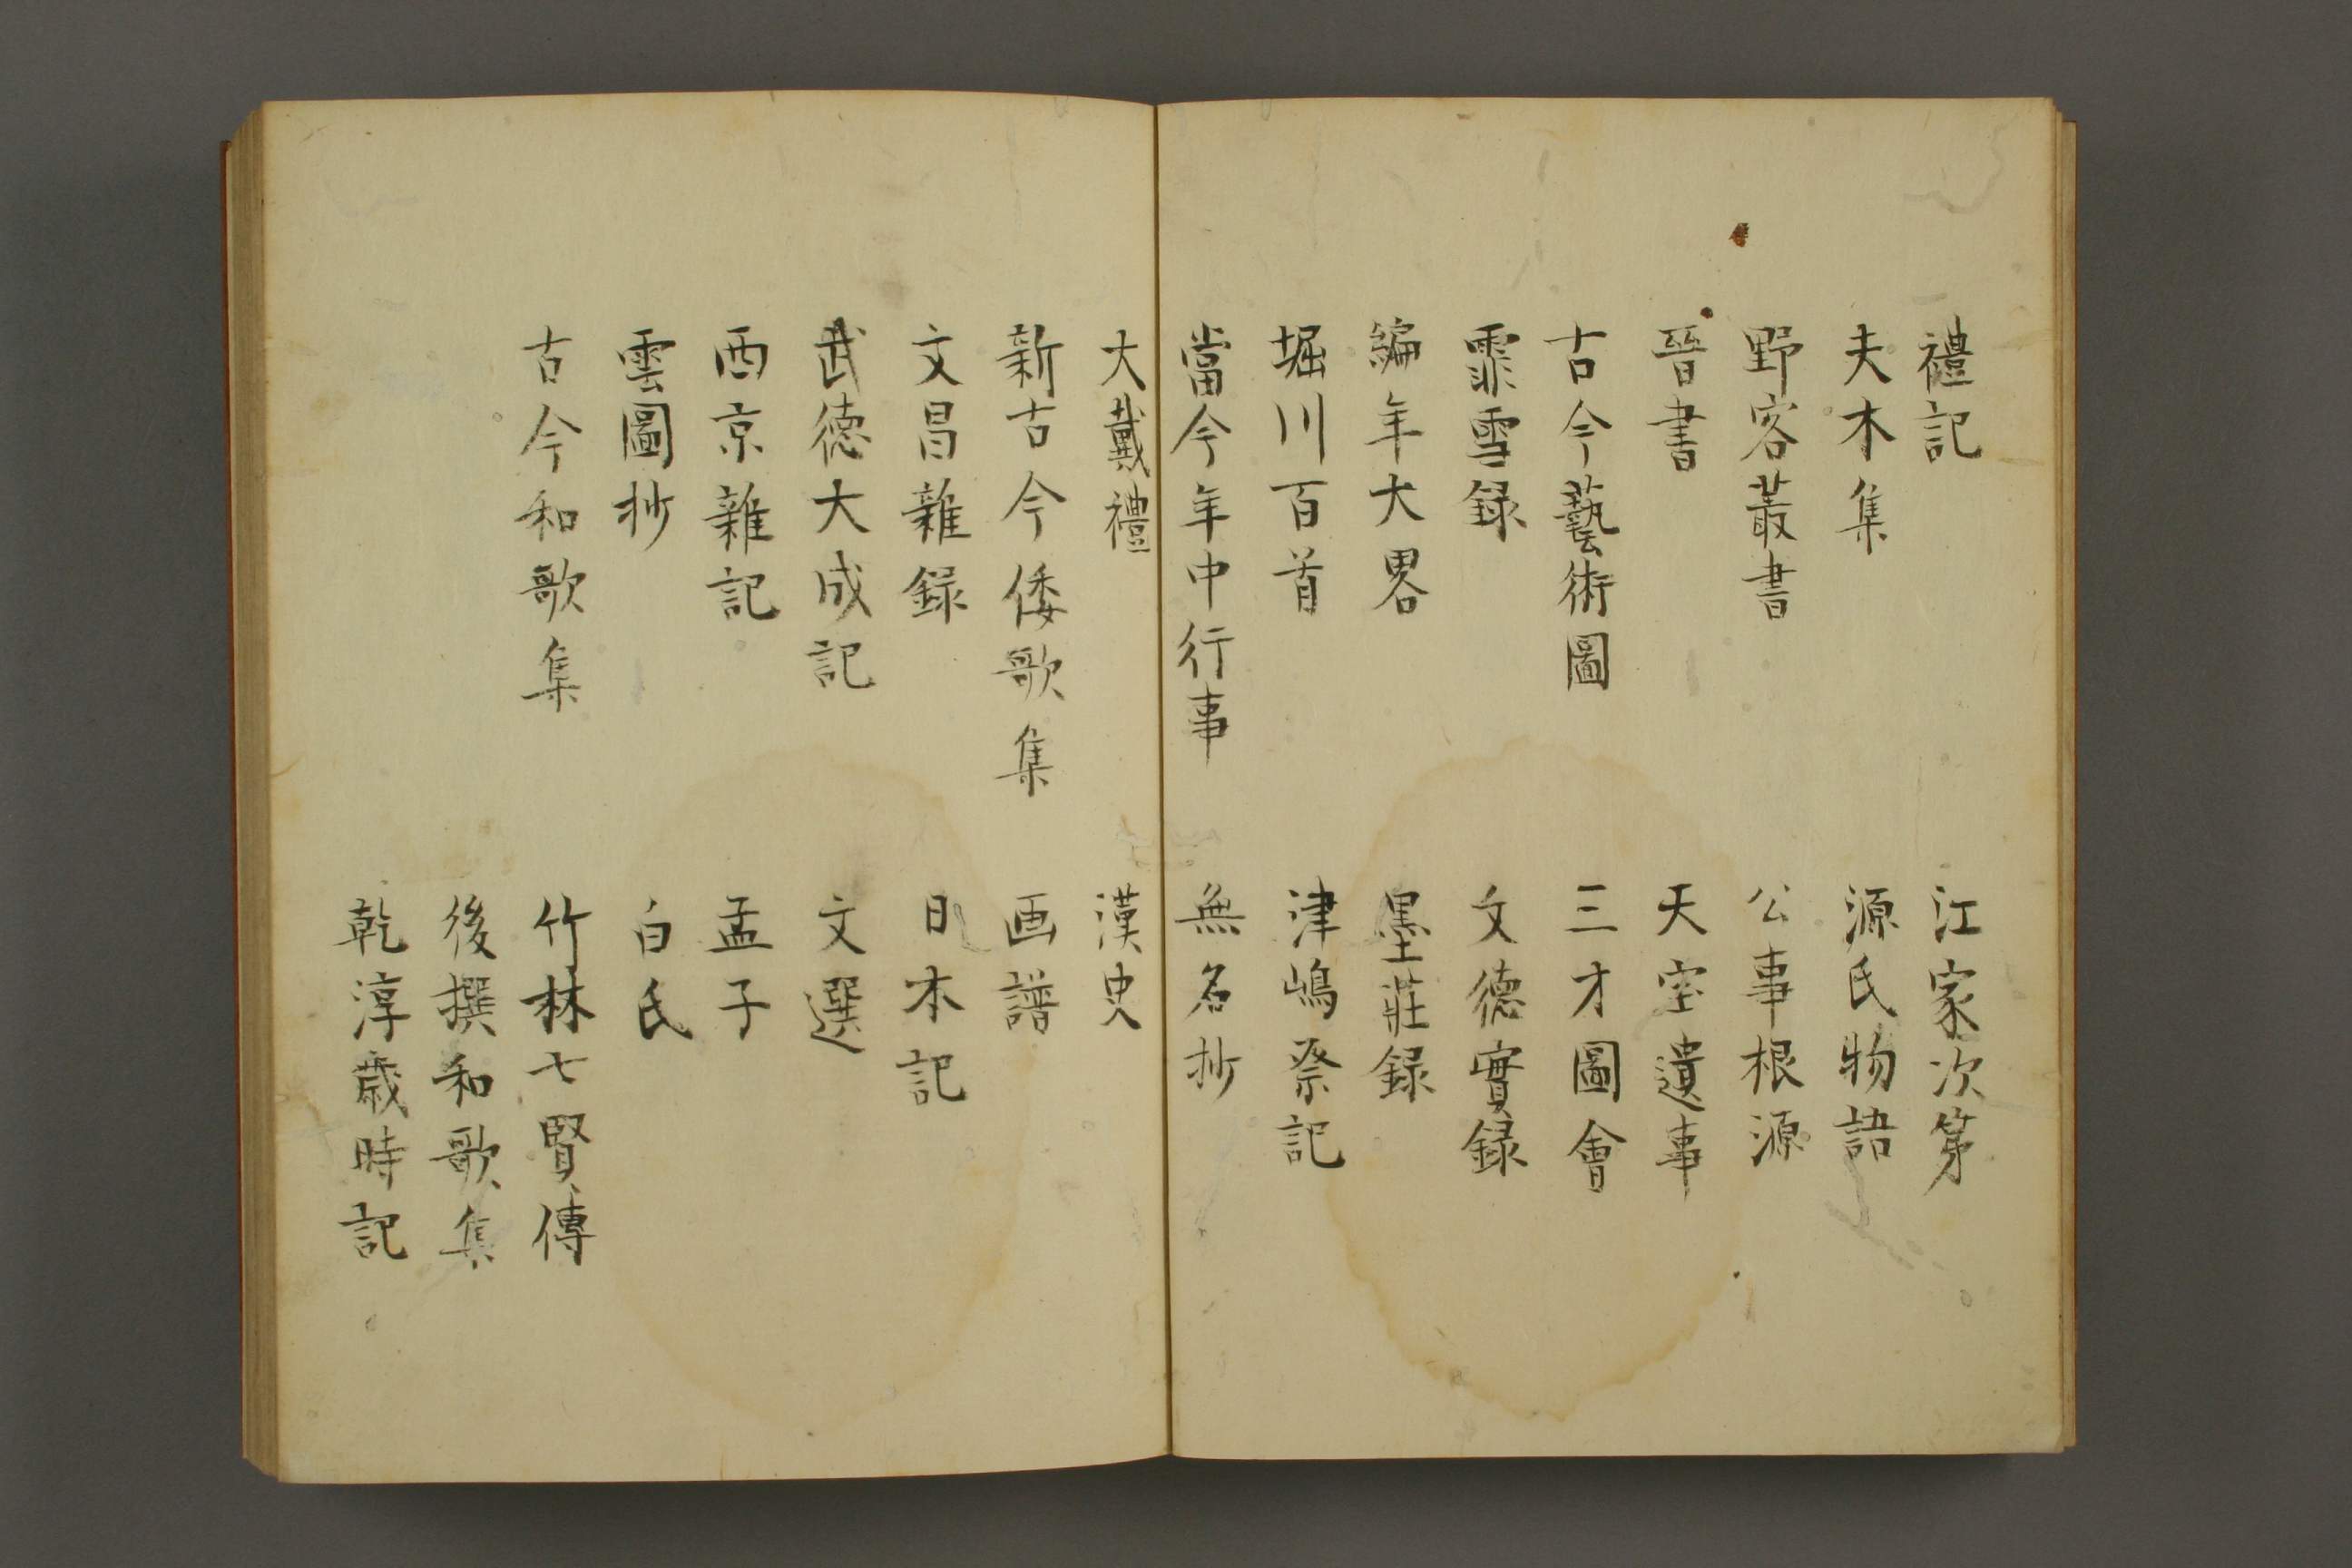 禮記
江家次第
夫木集
源氏物語
野客叢書
公事根源
晉書
天宝遺事
古今藝術圖
三才圖會
霏雪録
文德實録
編年大畧
墨莊録
堀川百首
津嶋祭記
當今年中行事
無名抄
大戴禮
漢史
新古今倭歌集
画譜
文昌雜錄
日本記
武德大成記
文選
西京雜記
孟子
雲圖抄
白氏
古今和歌集
竹林七賢傳
後撰和歌集
乾淳歲時記